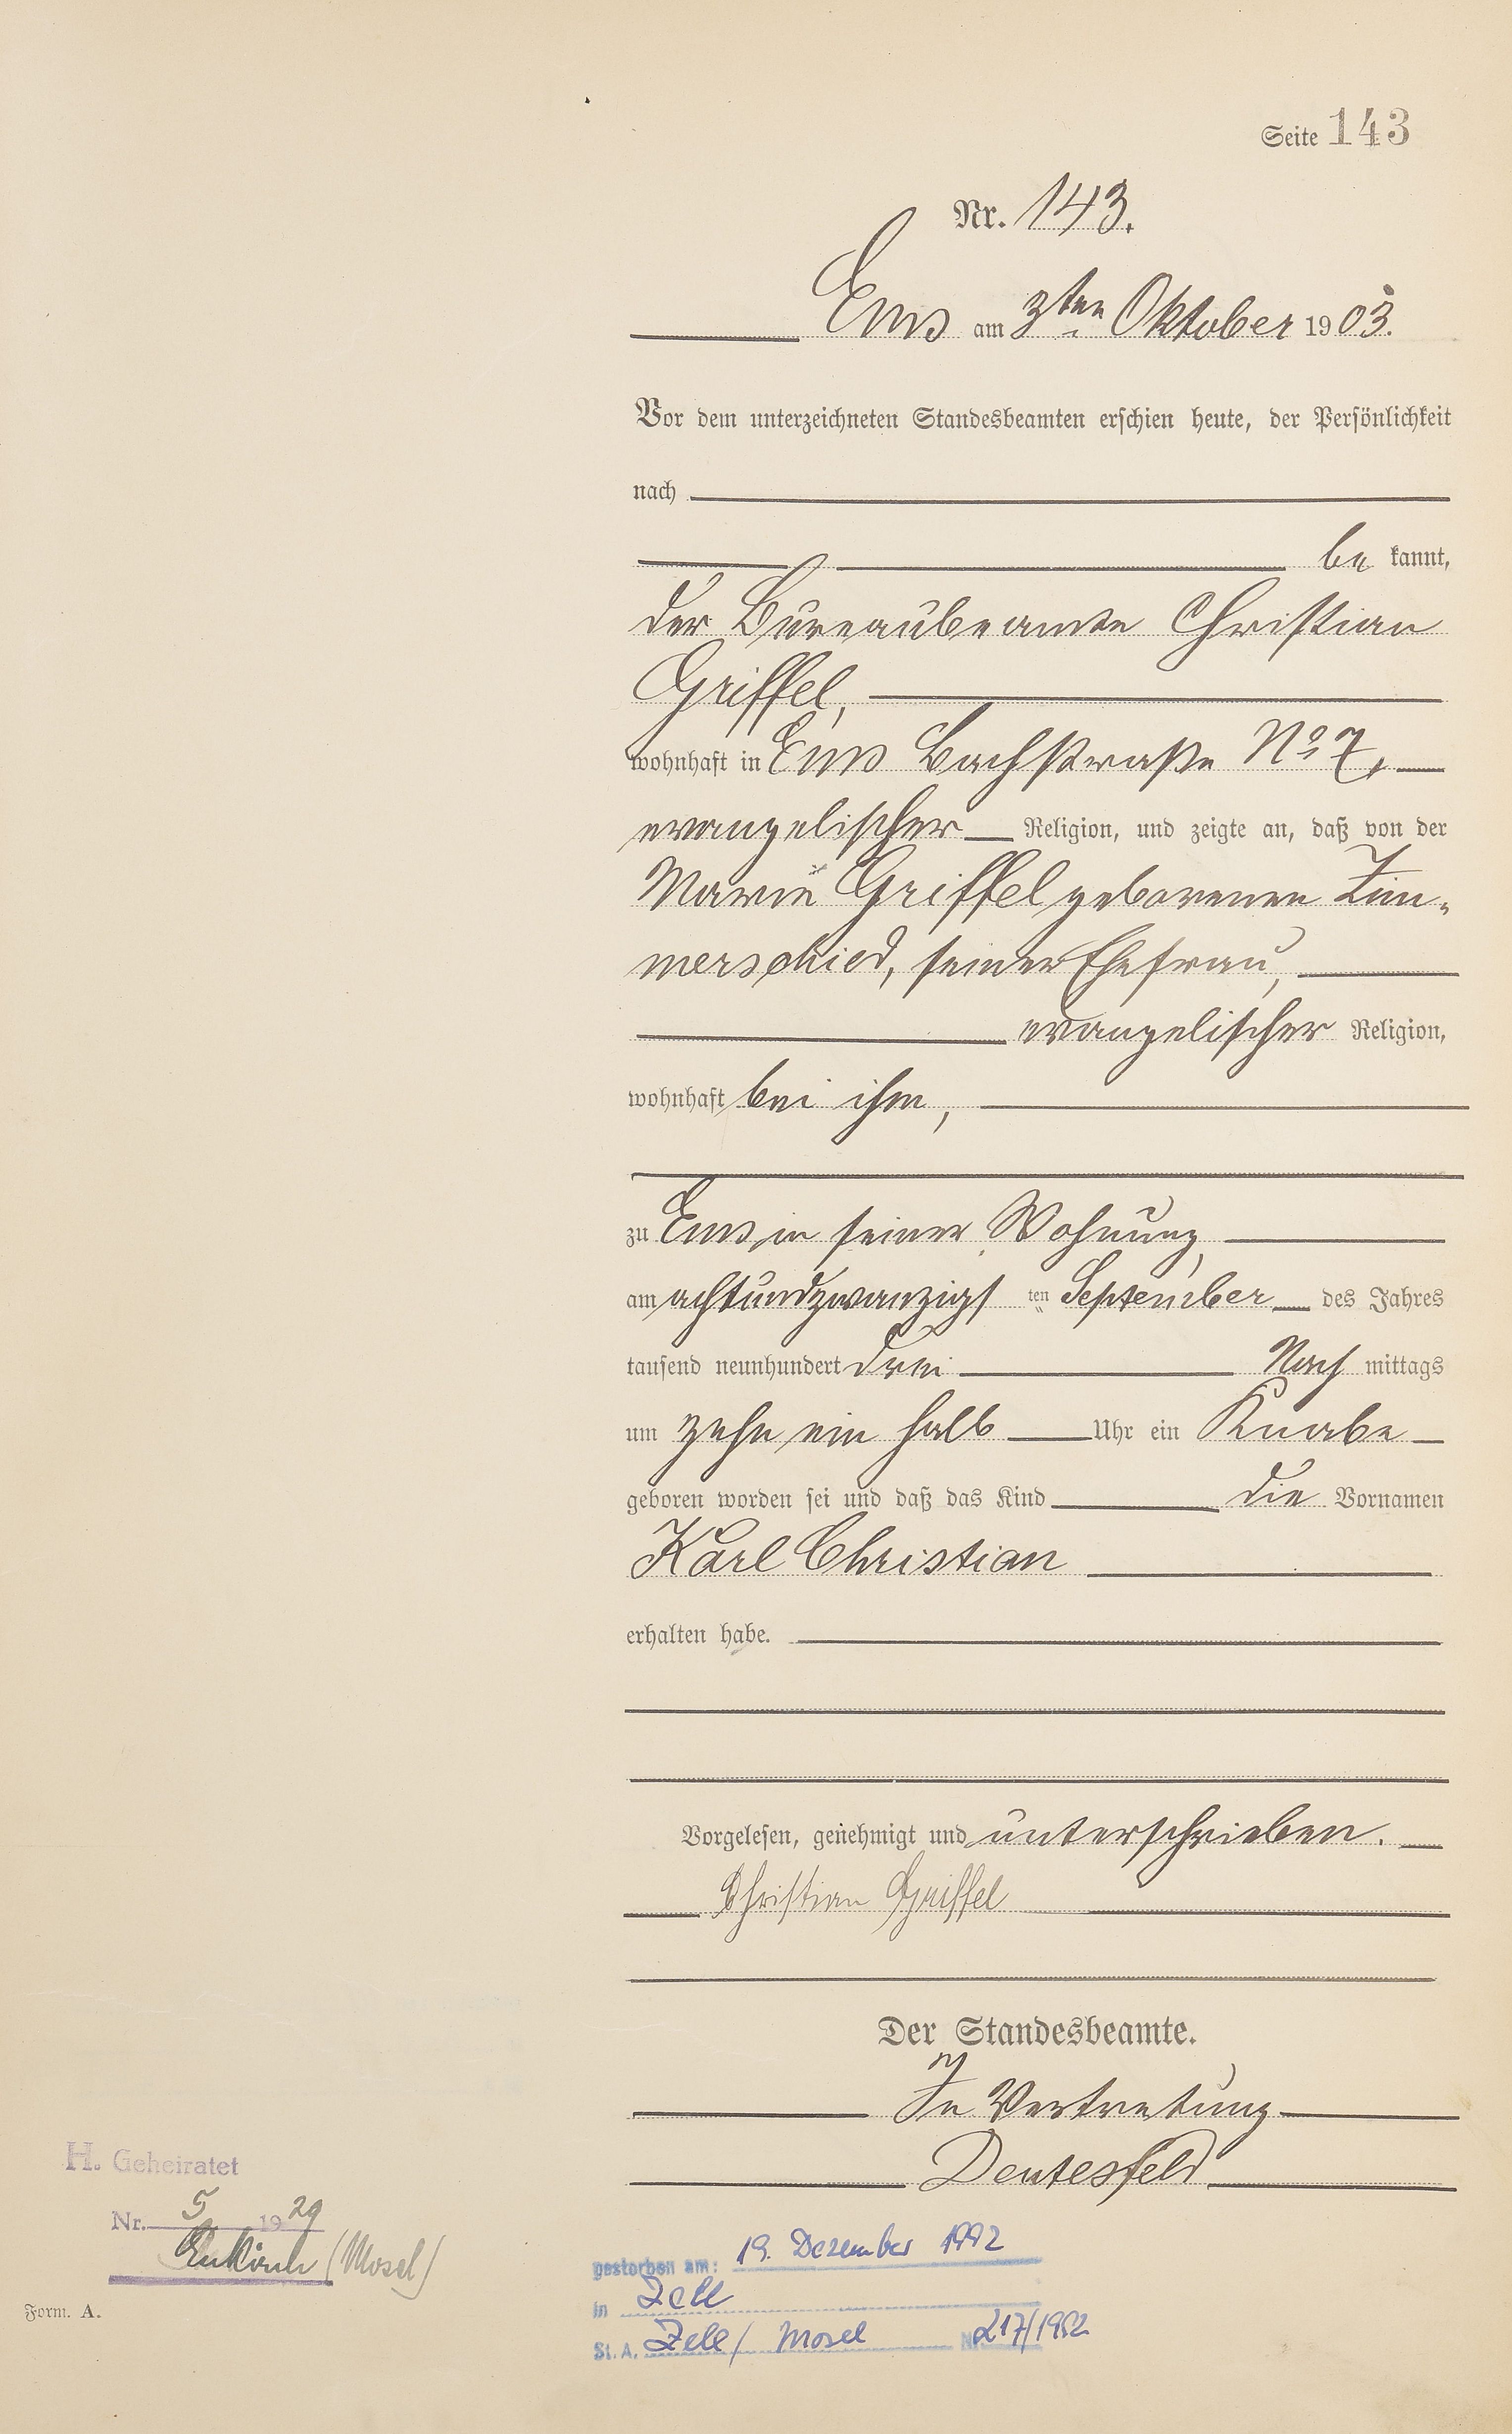 Seite 143
Nr. 143.
Ems am 3ten Oktober 1903.
Vor dem unterzeichneten Standesbeamten erschien heute, der Persönlichkeit
nach
be kannt,
der Bureaubeamte Christian
Griffel,
wohnhaft in Ems Bachstraße No 7,
evangelischer Religion, und zeigte an, daß von der
Marie Griffel geborenen Zim-
merschied, seiner Ehefrau,
evangelischer Religion,
wohnhaft bei ihm,
zu Ems, in seiner Wohnung,
am achtundzwanzigsten September des Jahres
tausend neunhundert drei Nach mittags
um zehn ein halb Uhr ein Knabe
geboren worden sei und daß das Kind die Vornamen
Karl Christian
erhalten habe.
Vorgelesen, genehmigt und unterschrieben.
Christian Griffel
Der Standesbeamte.
In Vertretung
Deutesfeld
H. Geheiratet
Nr. 5 1929
Enkirch (Mosel)
Form. A.
gestorben am: 19. Dezember 1992
in Zell
St. A. Zell / Mosel Nr.